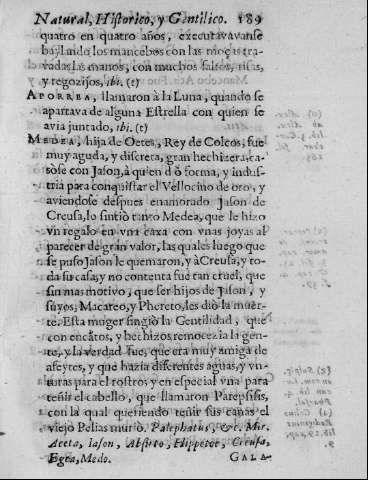 Natural, Historico, y Gentilico. 189
quatro en quatro años, executavavanse
baylando los mancebos con las moças tra-
vadas las manos, con muchos saltos, risas,
y regozijos, ibi. (t)
APORREA, llamaron à la Luna, quando se
apartava de alguna Estrella con quien se
avia juntado, ibi. (t)
MEDEA, hija de Oetes, Rey de Colcos, fue
muy aguda, y discreta, gran hechizera, ca-
sòse con Jason, à quien dió forma, y indus-
tria para conquistar el Vellocino de oro, y
aviendose despues enamorado Jason de
Creusa, lo sintiò tanto Medea, que le hizo
vn regalo en vna caxa con vnas joyas al
parecer de gran valor, las quales luego que
se puso Jason le quemaron, y à Creusa, y to-
da su casa, y no contenta fue tan cruel, que
sin mas motivo, que ser hijos de Jason, y
suyos, Macareo, y Phereto, les diò la muer-
te. Esta muger fingiò la Gentilidad, que
con encātos, y hechizos remoçezia la gen-
te, y la verdad fue, que era muy amiga de
afeytes, y que hazia diferentes aguas, y vn-
turas para el rostro y en especial vna para
teñir el cabello, que llamaron Parepsisis,
con la qual queriendo teñir sus canas el
viejo Pelias muriò. Palephatus, &c. Mir.
Aeeta, Iason, Absirto, Hippetor, Creusa,
Egea, Medo. GALA-